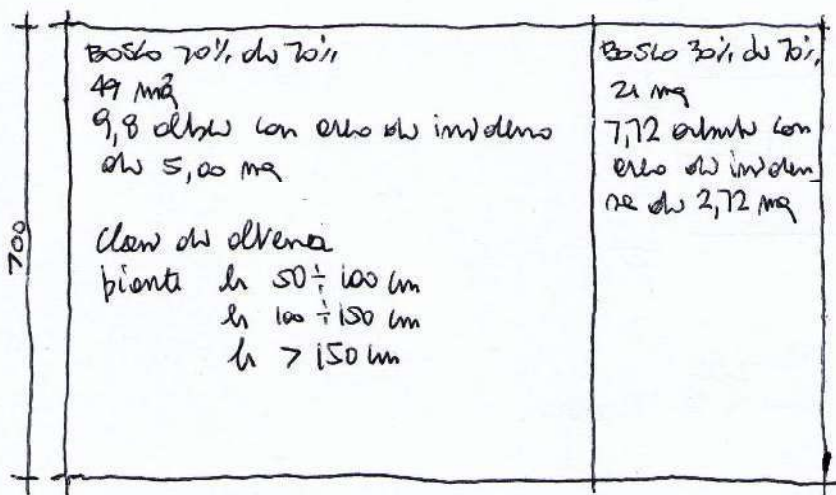 BOSCO 70% di 70%
49 mq
9,8 alberi con area di incidenza
di 5,00 mq
Classi di altezza
piante h 50÷100 cm
h 100÷150 cm
h > 150 cm
BOSCO 30% di 70%
21 mq
7,72 arbusti con
area di inciden_
za di 2,72 mq
700